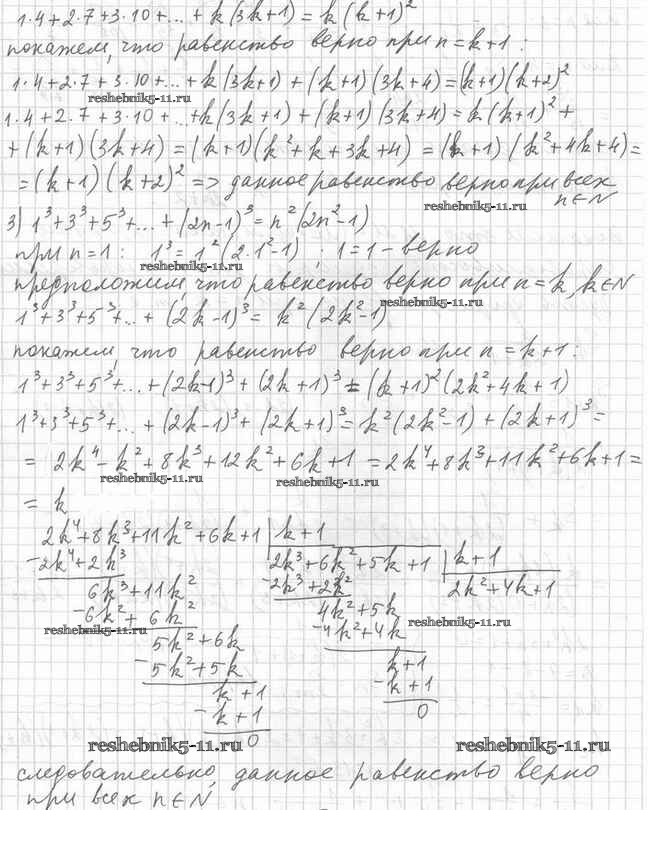 1·4+2·7+3·10+...+k(3k+1)=k(k+1)²
покажем, что равенство верно при n=k+1:
1·4+2·7+3·10+...+k(3k+1)+(k+1)(3k+4)=(k+1)(k+2)²
reshebnik5-11.ru
1·4+2·7+3·10+...+k(3k+1)+(k+1)(3k+4)=k(k+1)²+
+(k+1)(3k+4)=(k+1)(k²+k+3k+4)=(k+1)(k²+4k+4)=
=(k+1)(k+2)² => данное равенство верно при всех
reshebnik5-11.ru
n∈N
3) 1³+3³+5³+...+(2n-1)³=n²(2n²-1)
при n=1: 1³=1²(2·1²-1); 1=1 – верно
reshebnik5-11.ru
предположим, что равенство верно при n=k, k∈N
reshebnik5-11.ru
1³+3³+5³+...+(2k-1)³=k²(2k²-1)
покажем, что равенство верно при n=k+1:
1³+3³+5³+...+(2k-1)³+(2k+1)³=(k+1)²(2k²+4k+1)
1³+3³+5³+...+(2k-1)³+(2k+1)³=k²(2k²-1)+(2k+1)³=
=2k⁴-k²+8k³+12k²+6k+1=2k⁴+8k³+11k²+6k+1=
reshebnik5-11.ru reshebnik5-11.ru
=k
2k⁴+8k³+11k²+6k+1 | k+1
-2k⁴+2k³ 2k³+6k²+5k+1 | k+1
6k³+11k² -2k³+2k² 2k²+4k+1
-6k²+6k² 4k²+5k
reshebnik5-11.ru -4k²+4k reshebnik5-11.ru
5k²+6k
-5k²+5k k+1
k+1 -k+1
-k+1 0
0
reshebnik5-11.ru reshebnik5-11.ru
следовательно, данное равенство верно
при всех n∈N